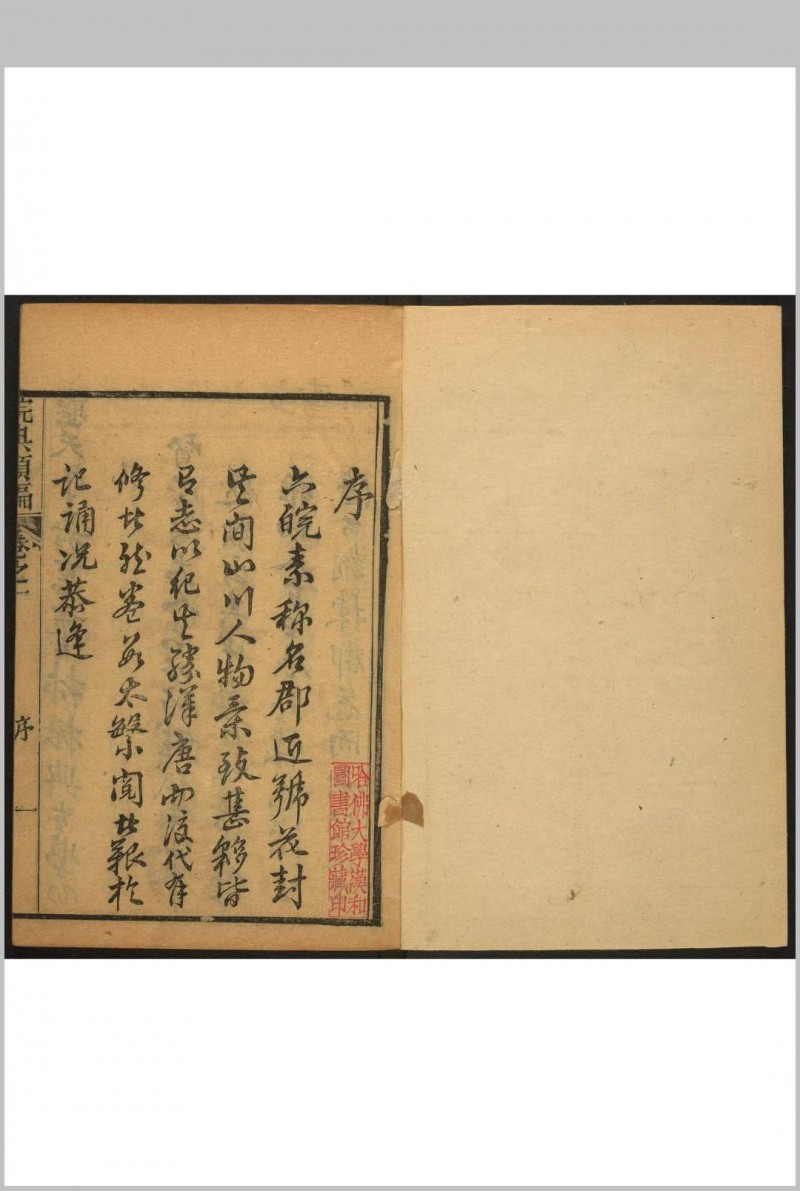 序
六皖素稱名郡近號花封
其間山川人物景致甚夥皆
有志以紀其勝漢唐而後代有
修者然卷数太繁閱者艱於
記誦况恭逢
皖典類編
卷之一
序
一
哈佛大學漢和
圖書館珍藏印